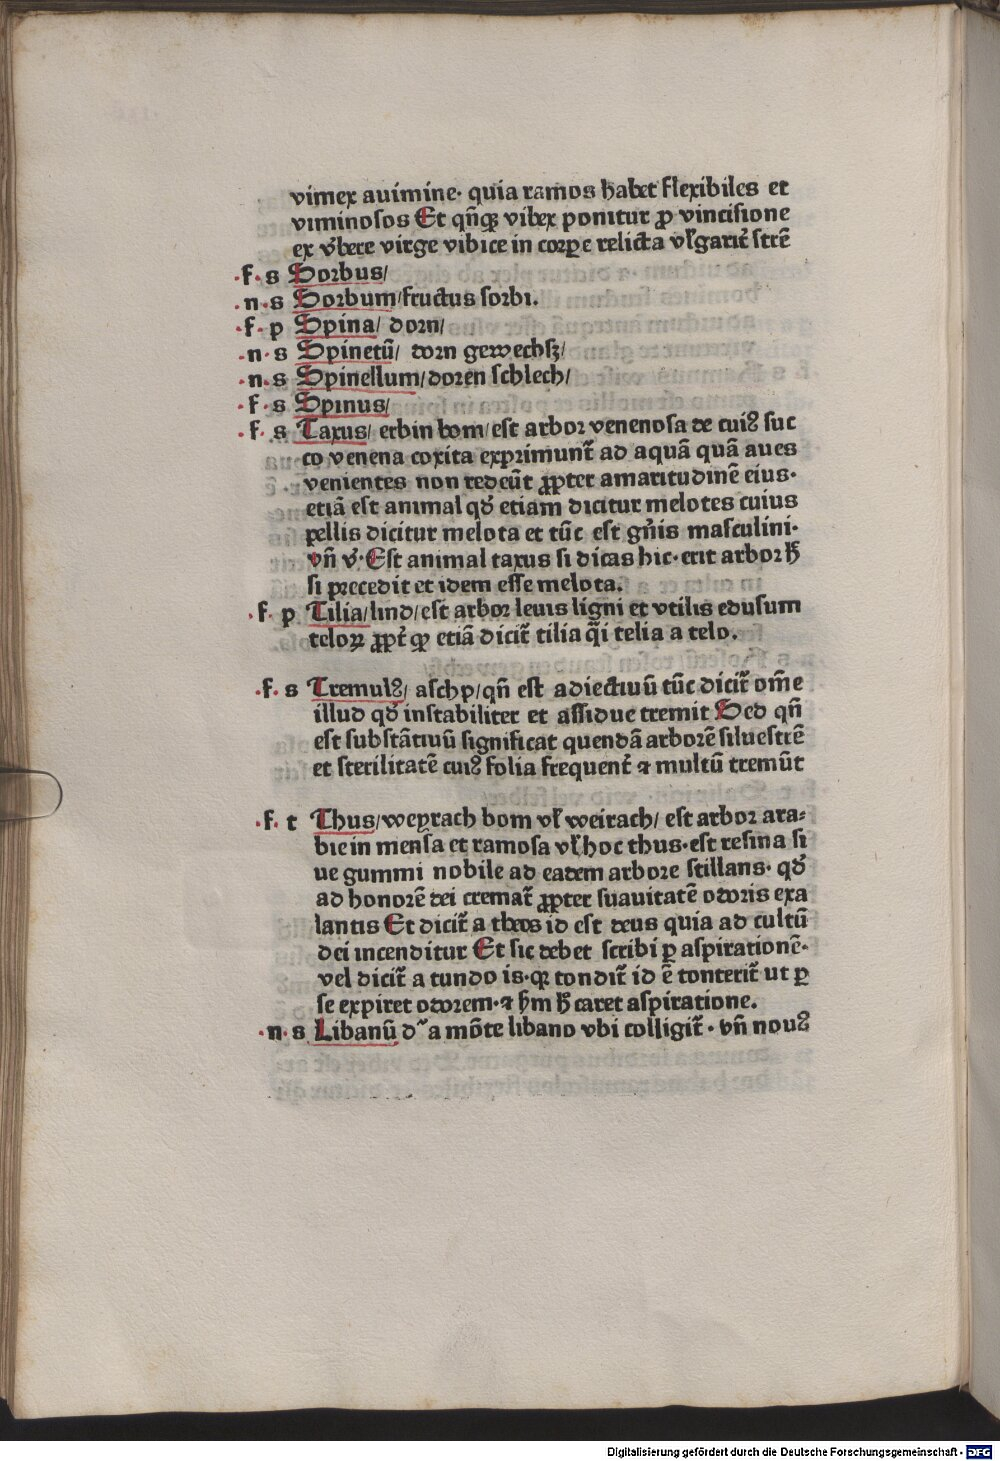 vimex auimine· quia ramos habet flexibiles et
viminosos Et qn̄qꝫ vibex ponitur ꝓ vincisione
ex vb̾ere virge vibice in corꝑe relicta vl̓garit̾ strē
·f·s Sorbus/
·n·s Sorbum/fructus sorbi.
·f·p Spina/ dorn/
·n·s Spinetū/ dorn gewechsz/
·n·s Spinellum/doren schlech/
·f·s Spinus/
·f·s Taxus/ erbin bom/est arbor venenosa de cuiꝰ suc
co venena toxita exprimunt̃ ad aquā quā aues
venientes non redeūt ꝓpter amaritudinē eius·
etiā est animal qd̓ etiam dicitur melotes cuius
pellis dicitur melota et tūc est gn̄is masculini·
vn̄ v̓·Est animal taxus si dicas hic·erit arbor h̓
si precedit et idem esse melota.
·f·p Tilia/lind/est arbor leuis ligni et vtilis edusum
teloꝝ ꝓpt̾ qꝫ etiā dicit̃ tilia q̄i telia a telo.
·f·s Tremulꝰ/ aschp/qn̄ est adiectiuū tūc dicit̃ om̄e
illud qd̓ instabiliter et assidue tremit Sed qn̄
est substātiuū significat quendā arborē siluestrē
et sterilitatē cuiꝰ folia frequent̾ ⁊ multū tremūt
·f·t Thus/weyrach bom vl̓ weirach/ est arbor ara⸗
bie in mensa et ramosa vl̓ hoc thus·est resina si
ue gummi nobile ad eadem arbore stillans· qd̓
ad honorē dei cremat̃ ꝓpter suauitatē odoris exa
lantis Et dicit̃ a theos id est deus quia ad cultū
dei incenditur Et sic debet scribi ꝑ aspirationē·
vel dicit̃ a tundo is·qꝫ tondit̃ id ē tonterit̃ ut ꝑ
se expiret odorem·⁊ ẜm h̓ caret aspiratione.
·n·s Libanū d̓ a mōte libano vbi colligit̃· vn̄ nouꝰ
Digitalisierung gefördert durch die Deutsche Forschungsgemeinschaft - DFG